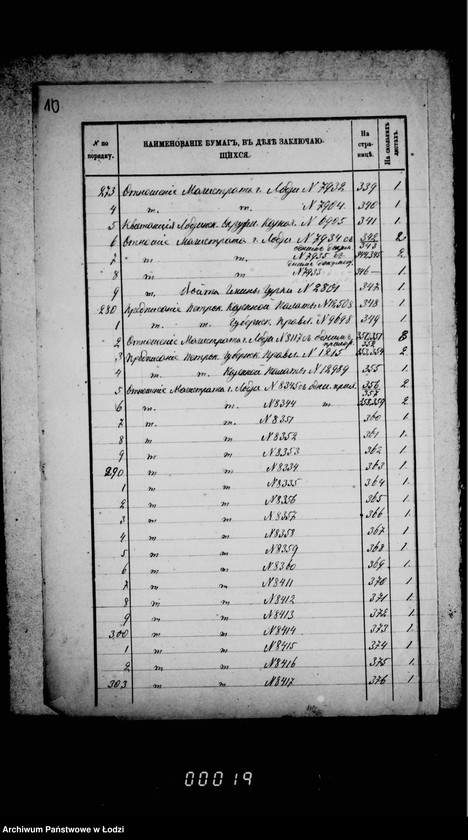 10
№ по порядку.
НАИМЕНОВАНІЕ БУМАГЪ, ВЪ ДѢЛѢ ЗАКЛЮЧАЮЩИХСЯ.
На страницѣ.
На сколькихъ листахъ.
273 Отношеніе Магистрата г. Лодзи № 7932 339 1.
4 т. т. № 7904 340 1.
5 Квитанція Лодзинск. Казнач. № 6905 341 1.
6 Отношеніе Магистрата г. Лодзи № 7934 съ 342 343 2
7 т. т. № 7955 съ 344 345 2
8 т. т. № 7933 346 1
9 т. Войта Гмины № 2801 347 1
280 Предписаніе Петрок. Казенной Палаты 348 1
1 т. т. Губернск. Правл. № 4698 349 1
2 Отношеніе Магистрата г. Лодзи № 8117 съ
3 Предписаніе Петрок. Губернск. Правл. № 1215 353,354 2
4 т. т. Казенной Палаты № 12989 355 1
5 Отношеніе Магистрата г. Лодзи № 8345 съ прил. 356 357 2
6 т. т. № 8344 т. 358,359 2
7 т. т. № 8351 360 1.
8 т т № 8352 361 1.
9 т т № 8353 362 1.
290 т т № 8334 363 1.
1 т т № 8335 364 1.
2 т т № 8356 365 1.
3 т т № 8357 366 1.
4 т т № 8358 367 1.
5 т т № 8359 368 1.
6 т т № 8360 369 1.
7 т т № 8411 370 1.
8 т т № 8412 371 1.
9 т т № 8413 372 1.
300 т т № 8414 373 1.
1 т т № 8415 374 1.
2 т т № 8416 375 1.
303 т т № 8417 376 1.
00019
Archiwum Państwowe w Łodzi